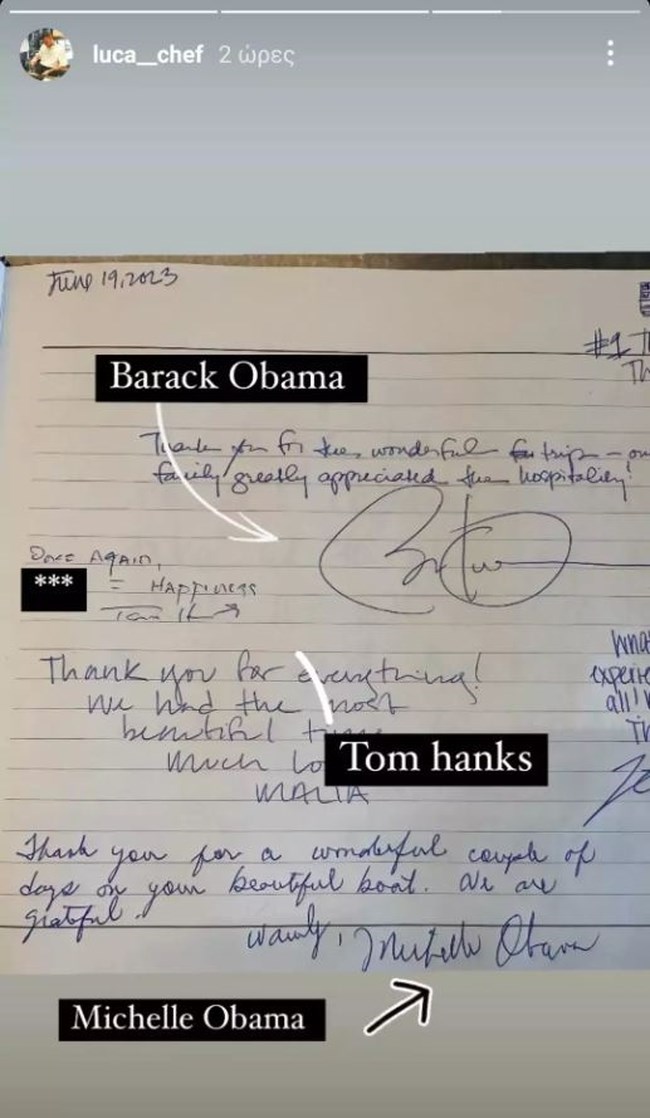 luca__chef 2 ώρες
June 19, 2023
#1 T
Th
Barack Obama
Thank you for the wonderful trip - our
family greatly appreciated the hospitality!
Once Again,
*** = Happiness
Thank you for everything!
We had the most
beautiful
Much Lo
MALIA
Tom hanks
Wha
experie
all!
Th
Thank you for a wonderful couple of
days on your beautiful boat. We are
grateful.
Warmly, Michelle Obama
Michelle Obama